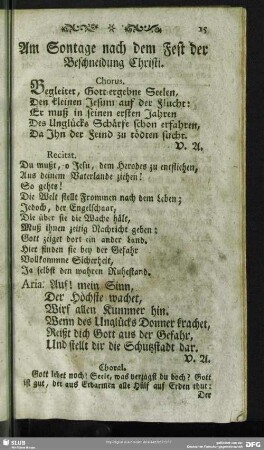 15
Am Sontage nach dem Fest der
Beschneidung Christi.
Chorus.
Begleitet, Gott-ergebne Seelen,
Den kleinen Jesum auf der Flucht:
Er muß in seinen ersten Jahren
Des Unglücks Schärfe schon erfahren,
Da Ihn der Feind zu tödten sucht.
V. A.
Recitat.
Du mußt, o Jesu, dem Herodes zu entfliehen,
Aus deinem Vaterlande ziehen!
So gehts!
Die Welt stellt Frommen nach dem Leben;
Jedoch, der Engelschaar,
Die über sie die Wache hält,
Muß ihnen zeitig Nachricht geben:
Gott zeiget dort ein ander Land.
Hier finden sie bey der Gefahr
Vollkommne Sicherheit,
Ja selbst den wahren Ruhestand.
Aria. Auf! mein Sinn,
Der Höchste wachet,
Wirf allen Kummer hin.
Wenn des Unglücks Donner krachet,
Reißt dich Gott aus der Gefahr,
Und stellt dir die Schutzstadt dar.
V. A.
Choral.
Gott lebet noch! Seele, was verzagst du doch? Gott
ist gut, der aus Erbarmen alle Hülf auf Erden thut:
Der
SLUB